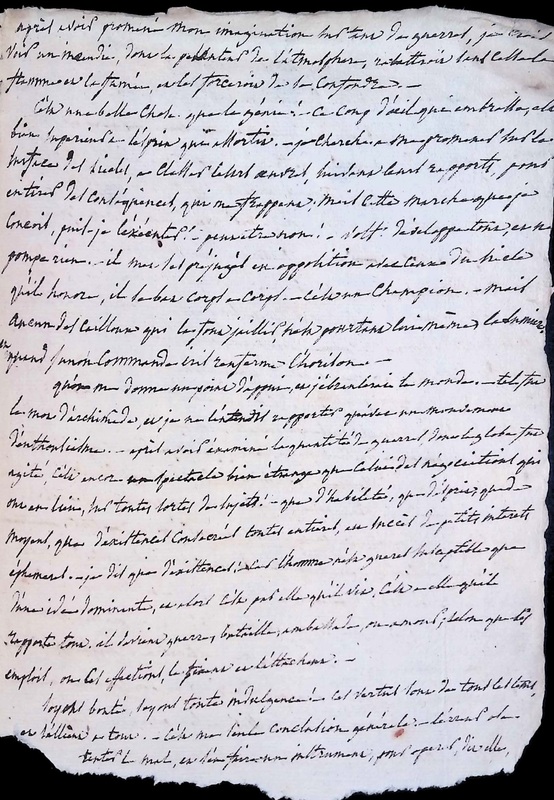 après avois promené mon imagination sus tans de guerres, je
vois un incendie, dons la pesenteus de l'atmosphere, rabattrois sans cesse la
flamme et la fumée, en les forceroit de se confondre. —
C'ést une belle chose que le génie! — ce coup d'oeil qui embrasse, est
bien superieus à l'esprit qui assortis. — je cherche à me promenes sus la
surface des siecles, à classes leurs oeuvres, suivans leurs rapports, pous
entires des conséquences, qui me frappens. mais cette marche que je
conçois, puis-je l'éxécutes? — peutetre non! — Volt: développe tous en ne
pompe rien. — il mes les préjugés en opposition avec ceux du siecle
qu'il honore, il se bas corps à corps. — c'ést un champion. — mais
aucun des cailloux qui le fons jaillis n'ést pourtans lui même, la lumiere
quand sa non commande et il renferme l'horison. —
qu'on me donne un poins d'appui, et j'ébranlerai le monde. — tel ést
le mos d'archimede, et je ne l'entends rapportes qu'avec un mouvemens
d'enthousiasme. — après avois éxaminé la quantité de guerres, dons le globe fus
agité, c'ést encore un spectacle bien étrange que celui des négociations qui
ons en lieu, sus toutes sortes de sujets! — que d'habileté, que d'éspris, que de
moyens, que d'éxistences consacrées toutes entieres, au succès de petits interets
éphemeres. — je dis que d'éxistences; car l'homme n'ést gueres susceptible que
d'une idée dominante, et alors c'ést pas elle qu'il vis, c'ést à elle qu'il
rapporte tous. il deviens guerre, bataille, ambassade, ou amour; selon que ses
emplois, ou ses affections, le fixens et l'attachens. —
soyons bonté, soyons toute indulgence! — ces vertus sons de tous les tems,
et s'allient à tous. — c'ést ma seule conclusion générale: —
tentes le mal, et s'en faire un instrument, pous operes